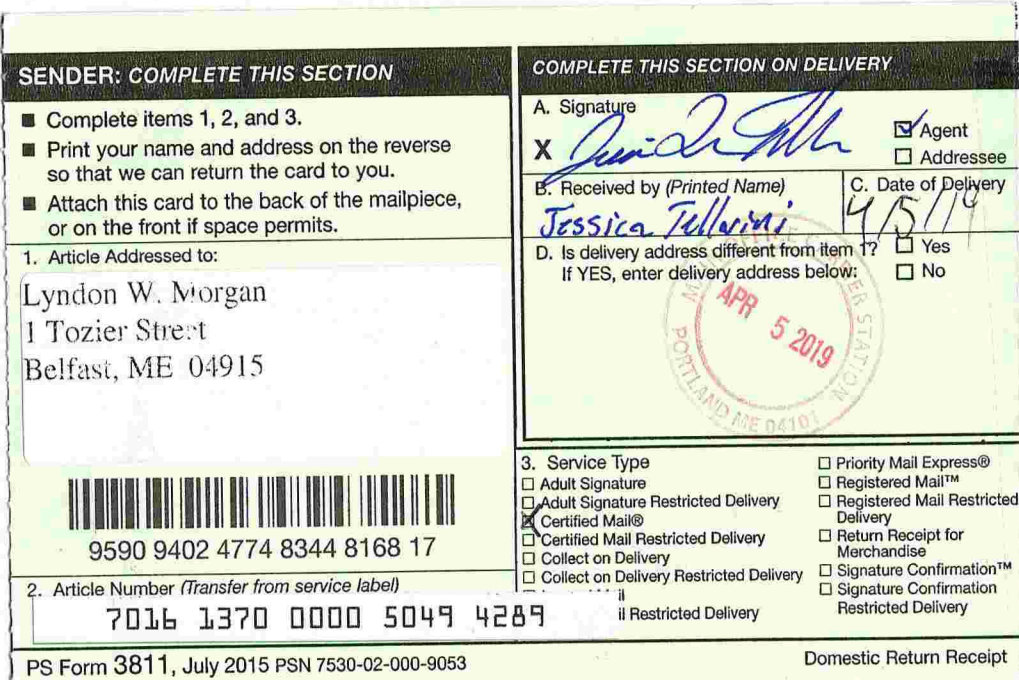 SENDER: COMPLETE THIS SECTION
■ Complete items 1, 2, and 3.
■ Print your name and address on the reverse
so that we can return the card to you.
■ Attach this card to the back of the mailpiece,
or on the front if space permits.
1. Article Addressed to:
Lyndon W. Morgan
1 Tozier Street
Belfast, ME 04915
9590 9402 4774 8344 8168 17
2. Article Number (Transfer from service label)
7016 1370 0000 5049 4289
PS Form 3811, July 2015 PSN 7530-02-000-9053
COMPLETE THIS SECTION ON DELIVERY
A. Signature
X
☑ Agent
☐ Addressee
B. Received by (Printed Name)
Jessica
C. Date of Delivery
4/5/19
D. Is delivery address different from item 1? ☐ Yes
If YES, enter delivery address below: ☐ No
APR 5 2019
STATION
PORTLAND ME 04101
3. Service Type
☐ Adult Signature
☐ Adult Signature Restricted Delivery
☒ Certified Mail®
☐ Certified Mail Restricted Delivery
☐ Collect on Delivery
☐ Collect on Delivery Restricted Delivery
il Restricted Delivery
☐ Priority Mail Express®
☐ Registered Mail™
☐ Registered Mail Restricted
Delivery
☐ Return Receipt for
Merchandise
☐ Signature Confirmation™
☐ Signature Confirmation
Restricted Delivery
Domestic Return Receipt